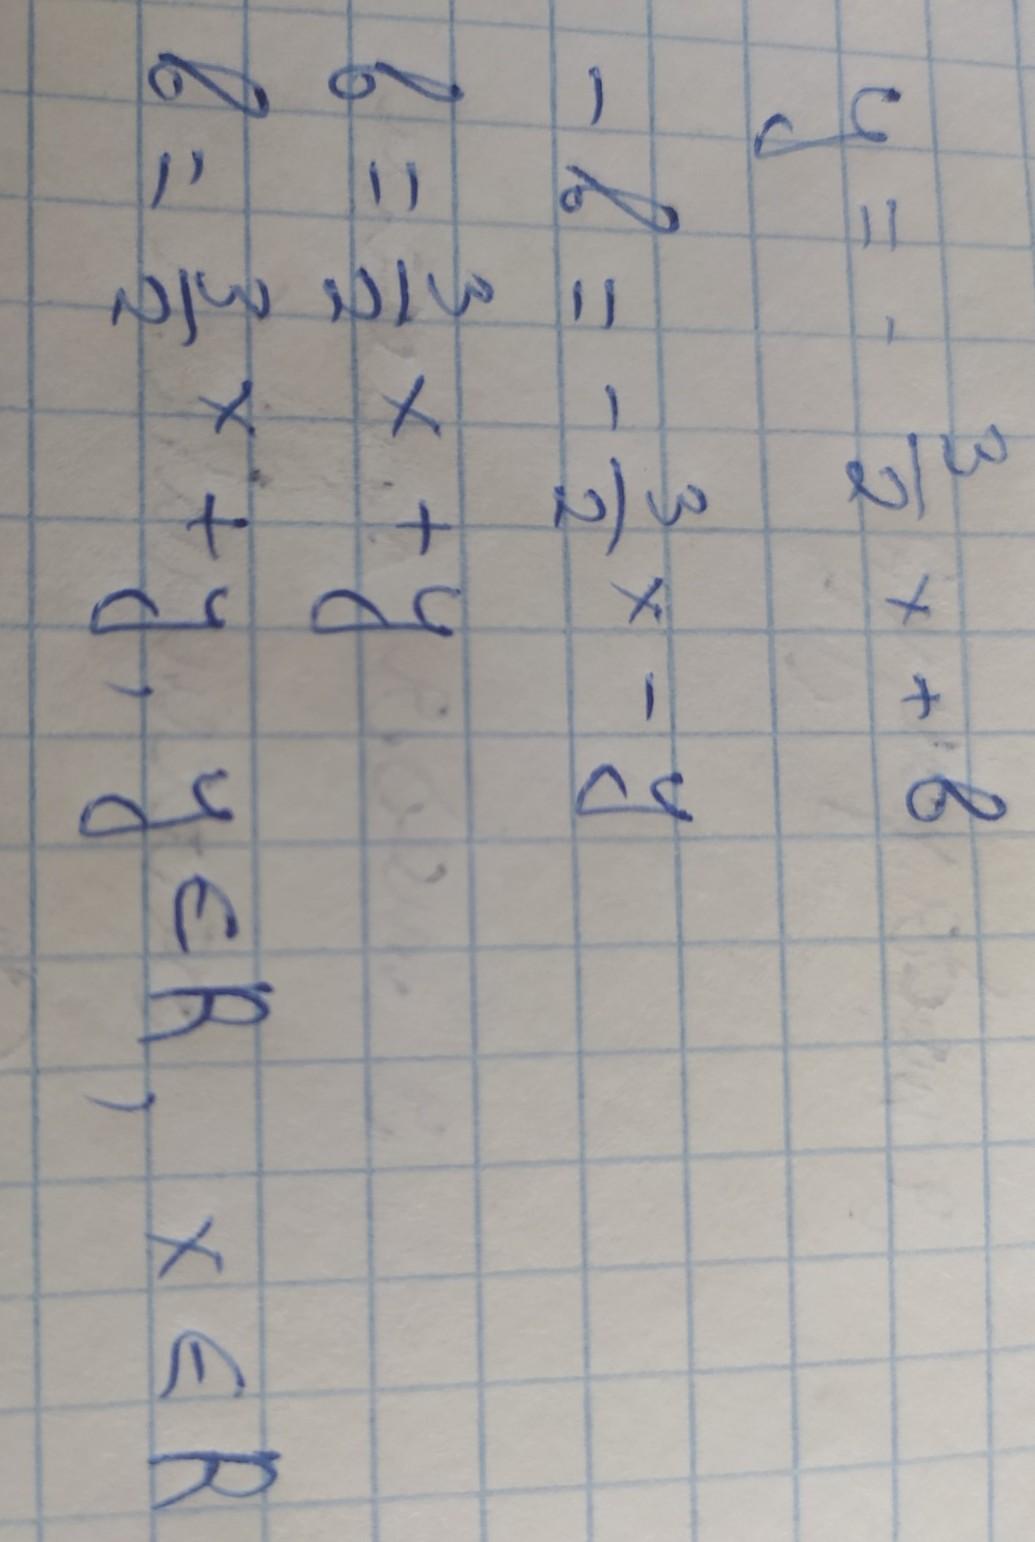 y = - 3/2 x + b
- b = - 3/2 x - y
b = 3/2 x + y
b = 3/2 x + y, y ∈ R, x ∈ R